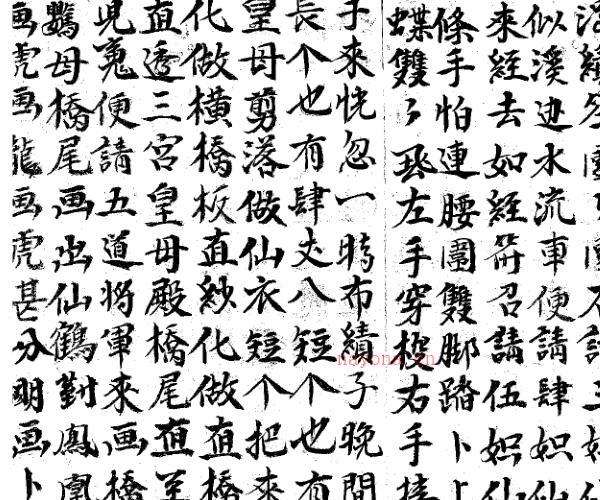 似溪边水流車便請肆妼
來經去如經筘召請伍妼仙
條手怕連腰圍雙脚踏卜
蝶雙〻飛左手穿梭右手
子來恍忽一時布績子晚間
長个也有肆丈八短个也有
皇母剪落做仙衣短个把來
化做橫橋板直紗化做直橋
直透三宮皇母殿橋尾直至
児寃便請五道将軍來画橋
鸚母橋尾画出仙鶴對鳳凰
画虎画龍画虎甚分明画卜